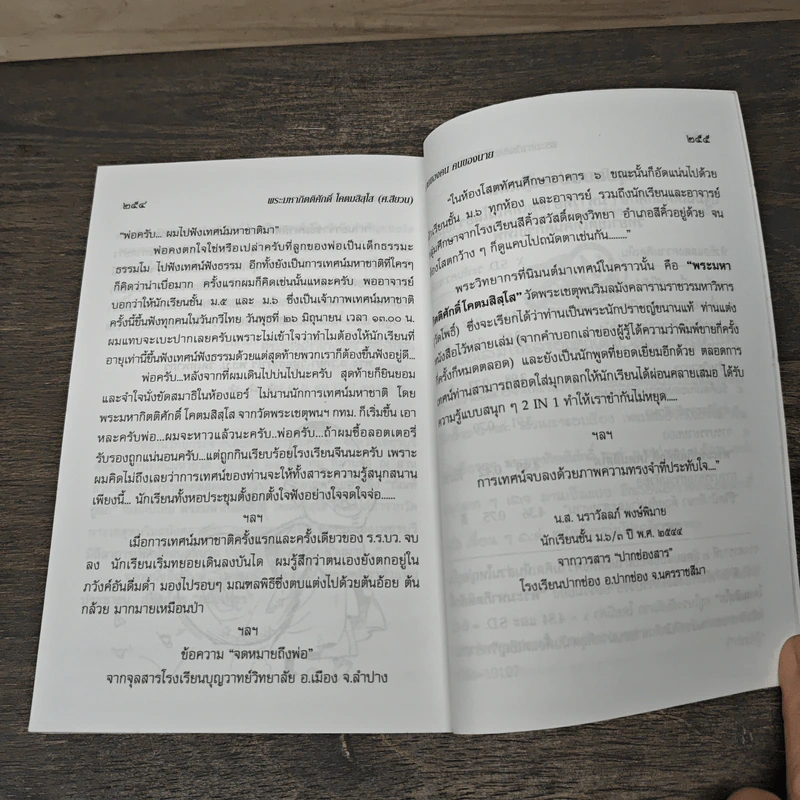 ๒๕๔
พระมหากิตติศักดิ์ โคตมสิสฺโส (ศ.สียวน)
"พ่อครับ... ผมไปฟังเทศน์มหาชาติมา"
พ่อคงตกใจใช่หรือเปล่าครับที่ลูกของพ่อเป็นเด็กธรรมะ
ธรรมโม ไปฟังเทศน์ฟังธรรม อีกทั้งยังเป็นการเทศน์มหาชาติที่ใครๆ
ก็คิดว่าน่าเบื่อมาก ครั้งแรกผมก็คิดเช่นนั้นแหละครับ พออาจารย์
บอกว่าให้นักเรียนชั้น ม.๕ และ ม.๖ ซึ่งเป็นเจ้าภาพเทศน์มหาชาติ
ครั้งนี้ขึ้นฟังทุกคนในวันกวีไทย วันพุธที่ ๒๖ มิถุนายน เวลา ๑๓.๐๐ น.
ผมแทบจะเบะปากเลยครับเพราะไม่เข้าใจว่าทำไมต้องให้นักเรียนที่
อายุเท่านี้ขึ้นฟังเทศน์ฟังธรรมด้วยแต่สุดท้ายพวกเราก็ต้องขึ้นฟังอยู่ดี...
พ่อครับ...หลังจากที่ผมเดินไปบ่นไปนะครับ สุดท้ายก็ยินยอม
และจำใจนั่งขัดสมาธิในห้องแอร์ ไม่นานนักการเทศน์มหาชาติ โดย
พระมหากิตติศักดิ์ โคตมสิสฺโส จากวัดพระเชตุพนฯ กทม. ก็เริ่มขึ้น เอา
หละครับพ่อ...ผมจะหาวแล้วนะครับ..พ่อครับ...ถ้าผมซื้อลอตเตอรี่
รับรองถูกแน่นอนครับ...แต่ถูกกินเรียบร้อยโรงเรียนจีนนะครับ เพราะ
ผมคิดไม่ถึงเลยว่าการเทศน์ของท่านจะให้ทั้งสาระความรู้สนุกสนาน
เพียงนี้... นักเรียนทั้งหอประชุมตั้งอกตั้งใจฟังอย่างใจจดใจจ่อ......
ฯลฯ
เมื่อการเทศน์มหาชาติครั้งแรกและครั้งเดียวของ ร.ร.บว. จบ
ลง นักเรียนเริ่มทยอยเดินลงบันได ผมรู้สึกว่าตนเองยังตกอยู่ใน
ภวังค์อันดื่มด่ำ มองไปรอบๆ มณฑลพิธีซึ่งตบแต่งไปด้วยต้นอ้อย ต้น
กล้วย มากมายเหมือนป่า
ฯลฯ
ข้อความ "จดหมายถึงพ่อ"
จากจุลสารโรงเรียนบุญวาทย์วิทยาลัย อ.เมือง จ.ลำปาง
คนของนาย
๒๕๕
"ในห้องโสตทัศนศึกษาอาคาร ๖ ขณะนั้นก็อัดแน่นไปด้วย
นักเรียนชั้น ม.๖ ทุกห้อง และอาจารย์ รวมถึงนักเรียนและอาจารย์
ศึกษาจากโรงเรียนสีคิ้วสวัสดิ์ผดุงวิทยา อำเภอสีคิ้วอยู่ด้วย จน
ห้องโสตกว้าง ๆ ก็ดูแคบไปถนัดตาเช่นกัน........"
พระวิทยากรที่นิมนต์มาเทศน์ในคราวนั้น คือ "พระมหา
กิตติศักดิ์ โคตมสิสฺโส" วัดพระเชตุพนวิมลมังคลารามราชวรมหาวิหาร
(วัดโพธิ์) ซึ่งจะเรียกได้ว่าท่านเป็นพระนักปราชญ์ขนานแท้ ท่านแต่ง
หนังสือไว้หลายเล่ม (จากคำบอกเล่าของผู้รู้ได้ความว่าพิมพ์ขายกี่ครั้ง
กี่ครั้งก็หมดตลอด) และยังเป็นนักพูดที่ยอดเยี่ยมอีกด้วย ตลอดการ
เทศน์ท่านสามารถสอดใส่มุกตลกให้นักเรียนได้ผ่อนคลายเสมอ ได้รับ
ความรู้แบบสนุก ๆ 2 IN 1 ทำให้เราขำกันไม่หยุด.....
ฯลฯ
การเทศน์จบลงด้วยภาพความทรงจำที่ประทับใจ..."
น.ส. นราวัลลภ์ พงษ์พิมาย
นักเรียนชั้น ม.๖/๓ ปี พ.ศ. ๒๕๔๔
จากวารสาร "ปากช่องสาร"
โรงเรียนปากช่อง อ.ปากช่อง จ.นครราชสีมา